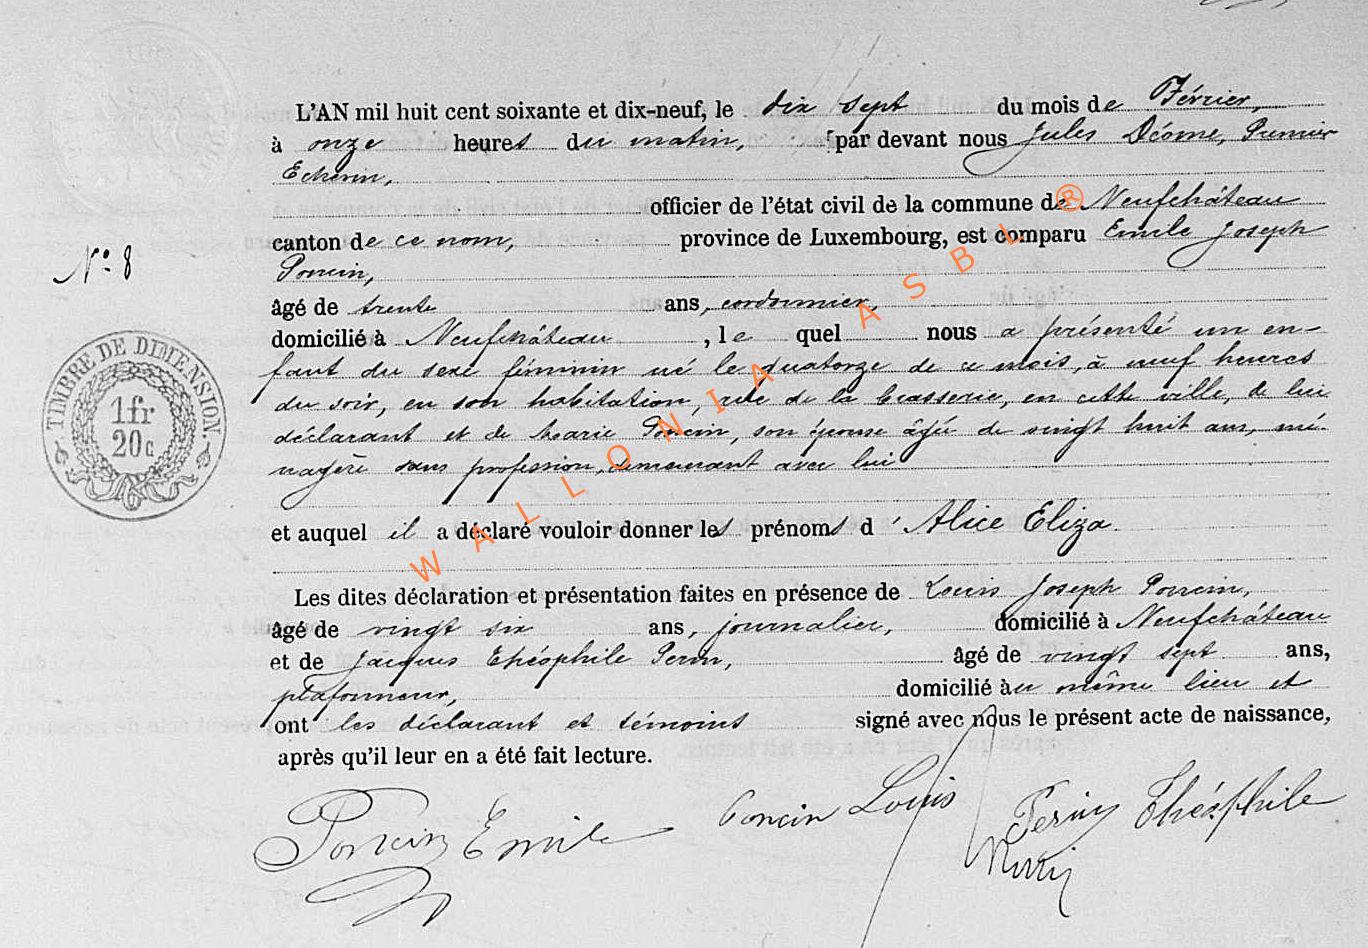 L'AN mil huit cent soixante et dix-neuf, le dix sept du mois de Février,
à onze heures du matin, par devant nous Jules Déome, Premier
Echevin,
officier de l'état civil de la commune de Neufchâteau
canton de ce nom, province de Luxembourg, est comparu Emile Joseph
N° 8
Poncin,
âgé de trente ans, cordonnier,
domicilié à Neufchâteau, le quel nous a présenté un en-
fant du sexe féminin né le quatorze de ce mois, à neuf heures
du soir, en son habitation, rue de la brasserie, en cette ville, de lui
déclarant et de Marie Poncin, son épouse âgée de vingt huit ans, mé-
nagère sans profession, demeurant avec lui
et auquel il a déclaré vouloir donner les prénoms d'Alice Eliza.
Les dites déclaration et présentation faites en présence de Louis Joseph Poncin,
âgé de vingt six ans, journalier, domicilié à Neufchâteau
et de Jacques Théophile Perin, âgé de vingt sept ans,
plafonneur, domicilié au même lieu et
ont les déclarant et témoins signé avec nous le présent acte de naissance,
après qu'il leur en a été fait lecture.
Poncin Emile Poncin Louis Perin Théophile
TIMBRE DE DIMENSION.
1fr
20c
WALLONIA ASBL ®